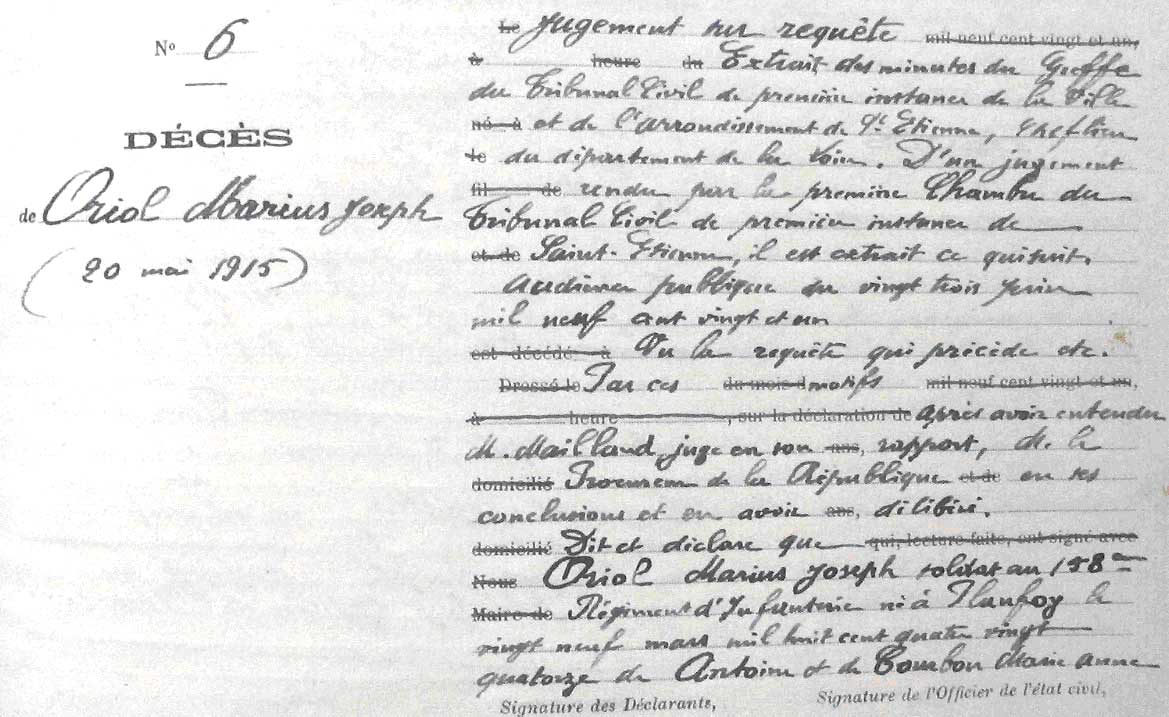 N° 6
DÉCÈS
de Oriol Marius Joseph
(20 mai 1915)
Le Jugement sur requête mil neuf cent vingt et un,
à heure du Extrait des minutes du Greffe
du Tribunal Civil de première instance de la Ville
né à et de l'arrondissement de St Etienne, chef lieu
le du département de la Loire. D'un jugement
fil de rendu par la première Chambre du
Tribunal Civil de première instance de
et de Saint-Etienne, il est extrait ce qui suit.
Audience publique du vingt trois juin
mil neuf cent vingt et un
est décédé à Vu la requête qui précède etc.
Dressé le Par ces du mois d motifs mil neuf cent vingt et un,
à heure , sur la déclaration de après avoir entendu
M. Mailland, juge en son ans, rapport, M. le
domicilié Procureur de la République et de en ses
conclusions et en avoir ans, délibéré.
domicilié Dit et déclare que qui, lecture faite, ont signé avec
Nous Oriol Marius Joseph soldat au 158me
Maire de Régiment d'Infanterie né à Planfoy le
vingt neuf mars mil huit cent quatre vingt
quatorze de Antoine et de Tombon Marie anne
Signature des Déclarants, Signature de l'Officier de l'état civil,